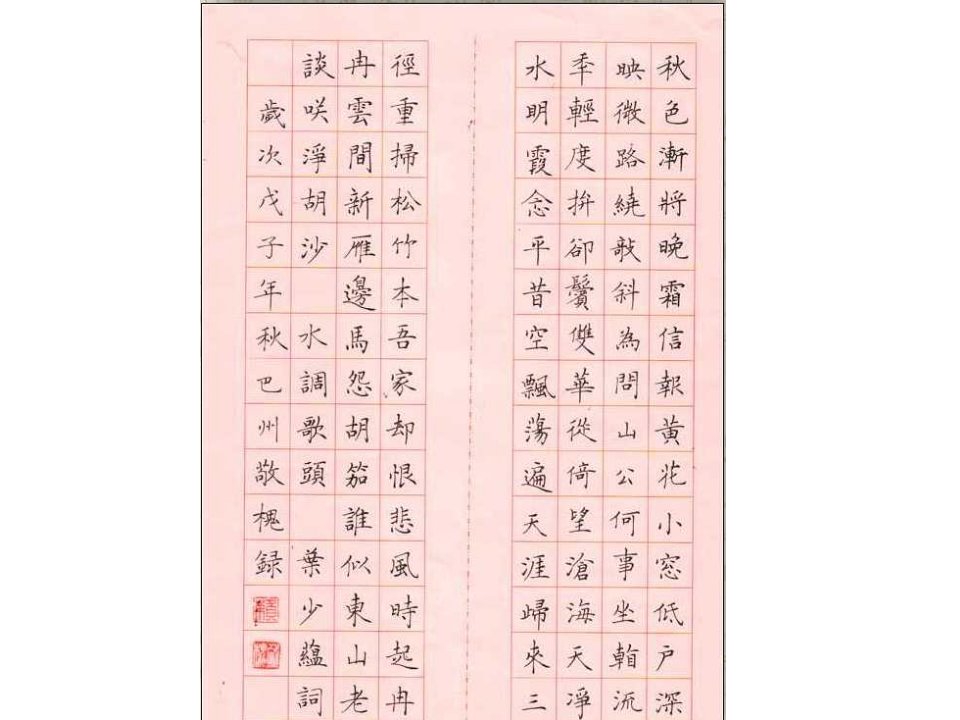 秋色漸將晚霜信報黃花小窓低戶深
映微路繞敧斜為問山公何事坐看流
秊輕度拚卻鬢雙華徙倚望滄海天凈
水明霞念平昔空飄蕩遍天涯歸來三
徑重掃松竹本吾家却恨悲風時起冉
冉雲間新雁邊馬怨胡笳誰似東山老
談咲淨胡沙 水調歌頭 葉少蘊詞
歲次戊子年秋巴州敬槐録